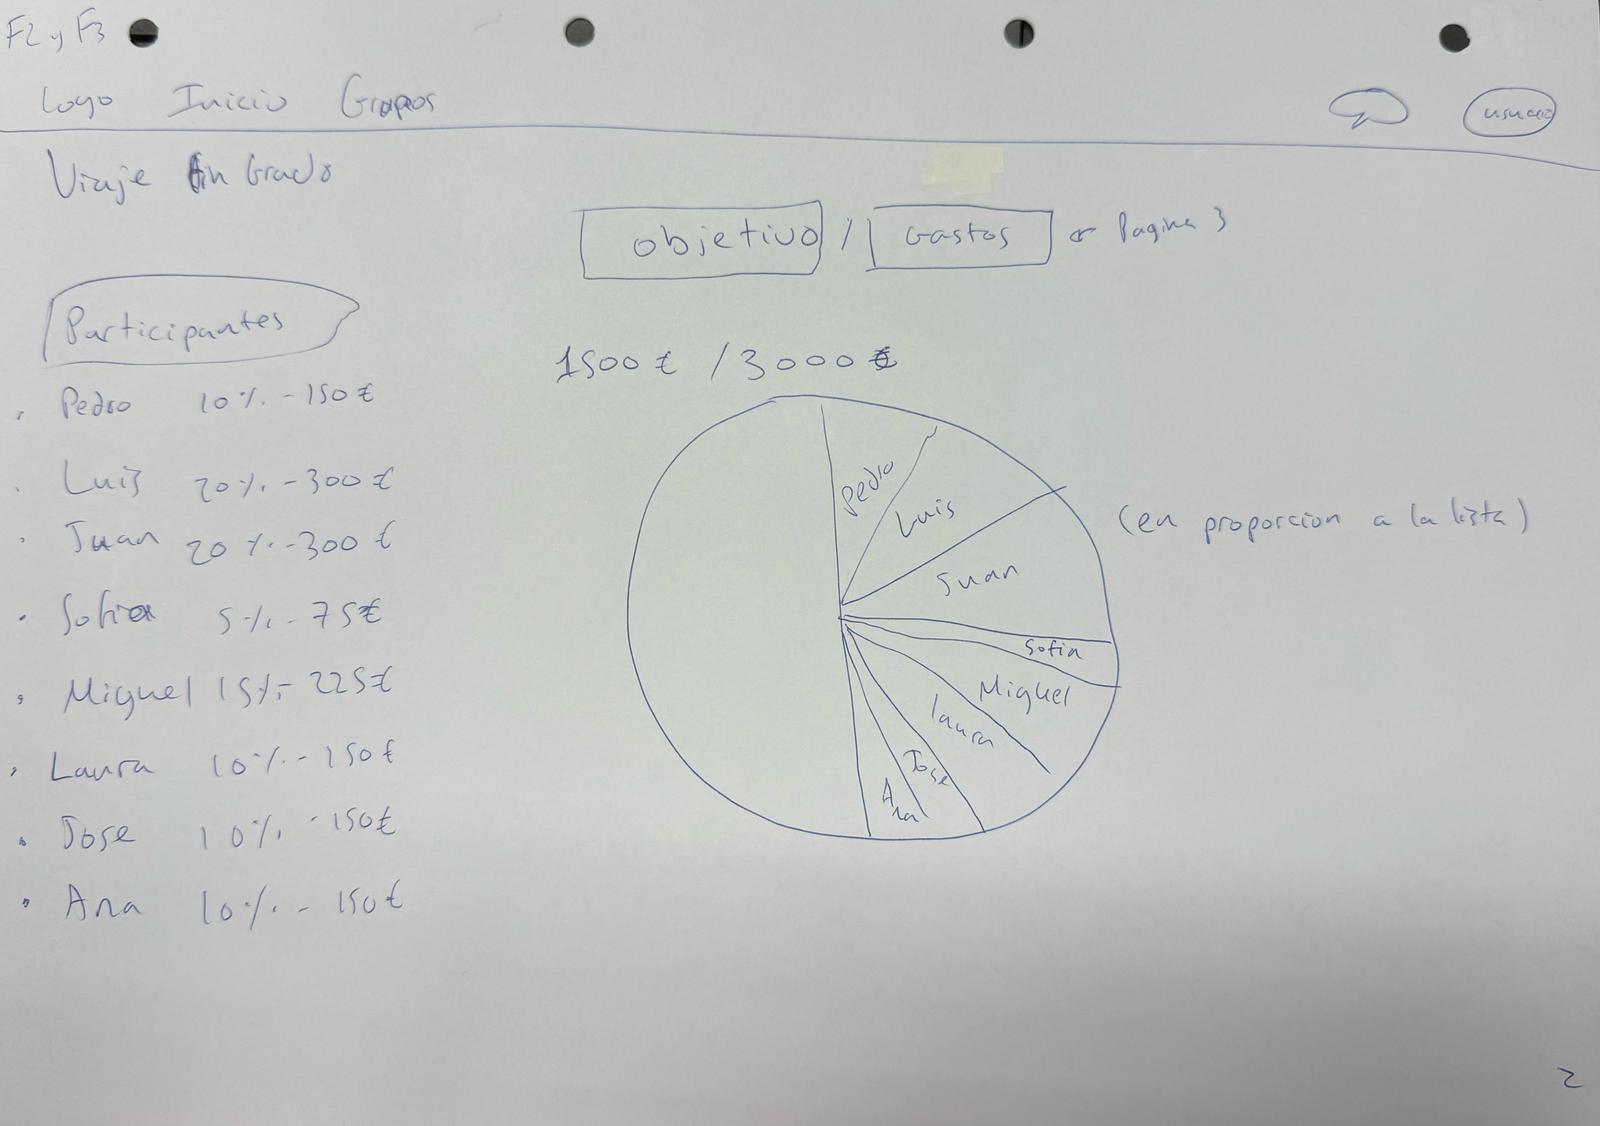 F2 y F3
Logo Inicio Grupos usuario
Viaje fin Grado
objetivo / Gastos ← Pagina 3
Participantes
1500 € / 3000 €
Pedro 10% - 150 €
Luis 20% - 300 €
Juan 20% - 300 €
Sofia 5% - 75 €
Miguel 15% - 225 €
Laura 10% - 150 €
Jose 10% - 150 €
Ana 10% - 150 €
Pedro
Luis
Juan
Sofia
Miguel
Laura
Jose
Ana
(en proporcion a la lista)
2